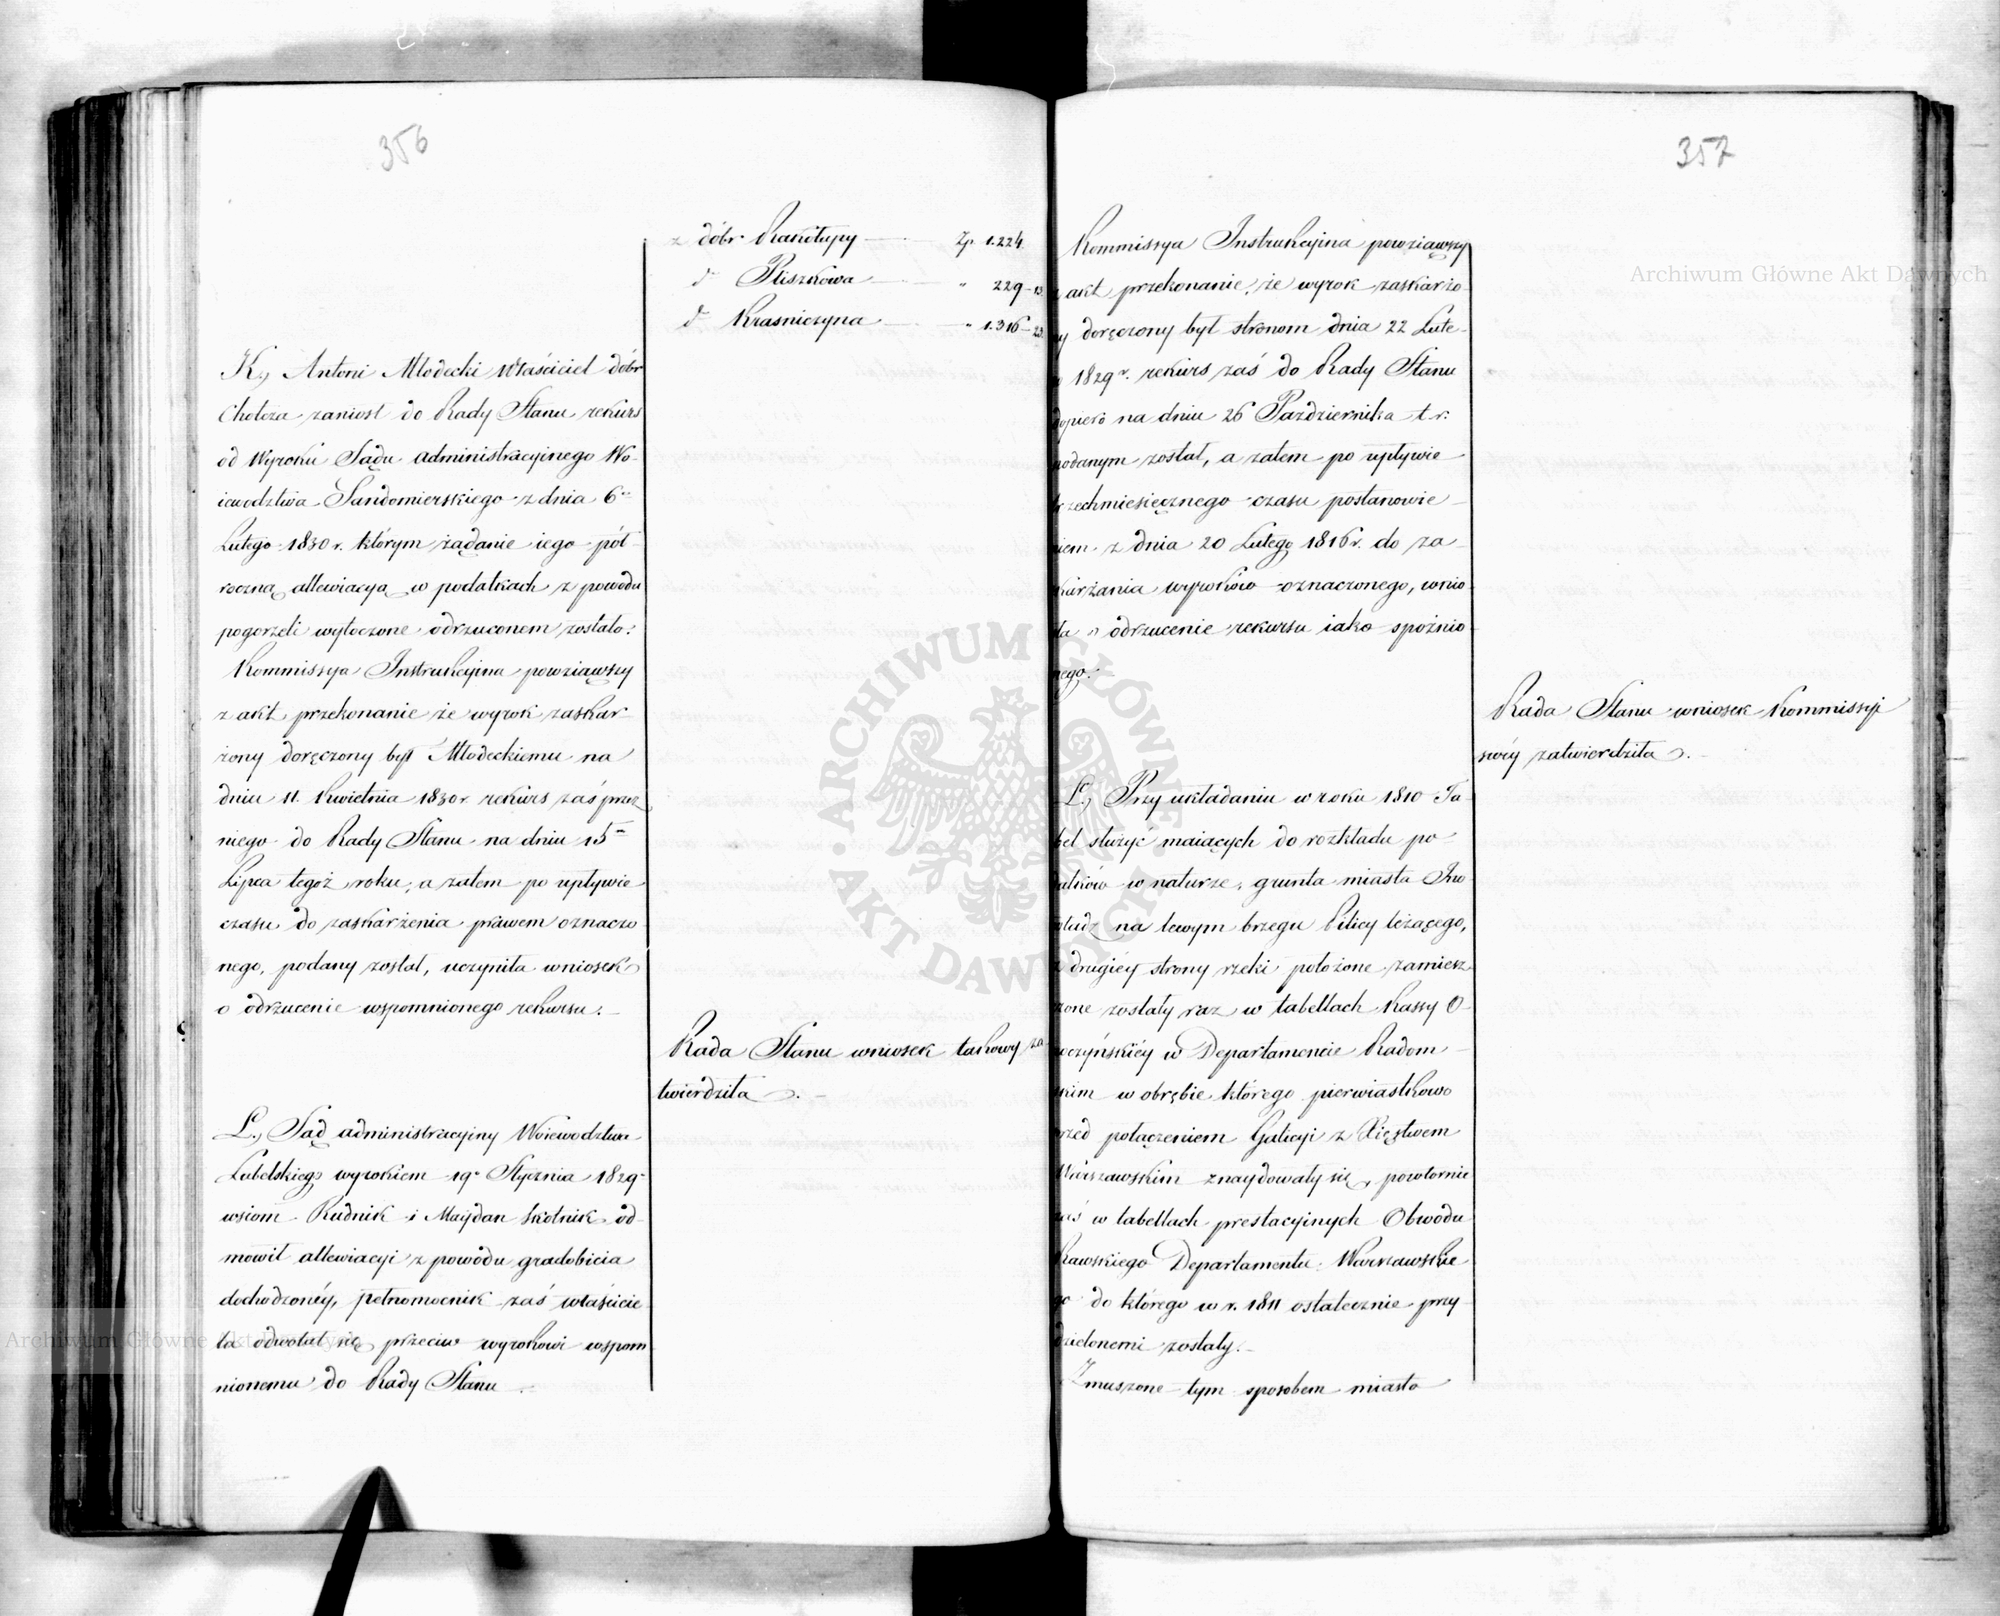 356
z dóbr Rakołupy Zp. 1.224
d° Pliszkowa " 229-13
d° Krasniczyna " 1.316-23
K., Antoni Młodecki Właściciel dóbr
Chotcza zaniosł do Rady Stanu rekurs
od Wyroku Sądu administracyinego Wo-
iewodztwa Sandomierskiego z dnia 6°
Lutego 1830 r. którym żądanie iego pół-
roczną allewiacyą w podatkach z powodu
pogorzeli wytoczone odrzuconem zostało.
Kommissya Instrukcyina powziąwszy
z akt przekonanie że wyrok zaskar-
żony doręczony był Młodeckiemu na
dniu 11. Kwietnia 1830 r. rekurs zaś przez
niego do Rady Stanu na dniu 15
Lipca tegoż roku, a zatem po upływie
czasu do zaskarżenia prawem oznaczo
nego, podany został, uczyniła wniosek
o odrzucenie wspomnionego rekursu.
Rada Stanu wniosek takowy za
twierdziła.
L., Sąd administracyiny Woiewodztwa
Lubelskiego wyrokiem 19° Stycznia 1829
wsiom Rudnik i Maydan Skolnik od-
mówił allewiacyi z powodu gradobicia
dochodzonéy, pełnomocnik zaś właścicie
la odwołał się przeciw wyrokowi wspom
nionemu do Rady Stanu.
357
Kommissya Instrukcyina powziąwszy
z akt przekonanie, że wyrok zaskarżo
ny doręczony był stronom dnia 22 Lute-
o 1829 r. rekurs zaś do Rady Stanu
dopiero na dniu 26 Października t. r.
podanym został, a zatem po upływie
trzechmiesięcznego czasu postanowie
niem z dnia 20 Lutego 1816 r. do za-
skarżania wyroków oznaczonego, wnio
sła o odrzucenie rekursu iako spoźnio
nego.
Rada Stanu wniosek Kommissyi
swéy zatwierdziła.
Ł., Przy układaniu w roku 1810 Ta-
bel służyć maiących do rozkładu po-
datków w naturze, grunta miasta Ino-
włodz na lewym brzegu Pilicy leżącego,
z drugiéy strony rzeki położone zamiesz
zone zostały raz w tabellach Kassy O-
poczyńskiéy w Departamencie Radom-
skim w obrębie którego pierwiastkowo
przed połączeniem Galicyi z Xięstwem
Warszawskim znaydowały się, powtornie
zaś w tabellach prestacyinych Obwodu
Rawskiego Departamentu Warszawskie
go do którego w r. 1811 ostatecznie przy
dzielonemi zostały.
Zmuszone tym sposobem miasto
ARCHIWUM GŁÓWNE AKT DAWNYCH
Archiwum Główne Akt Dawnych
Archiwum Główne Akt Dawnych